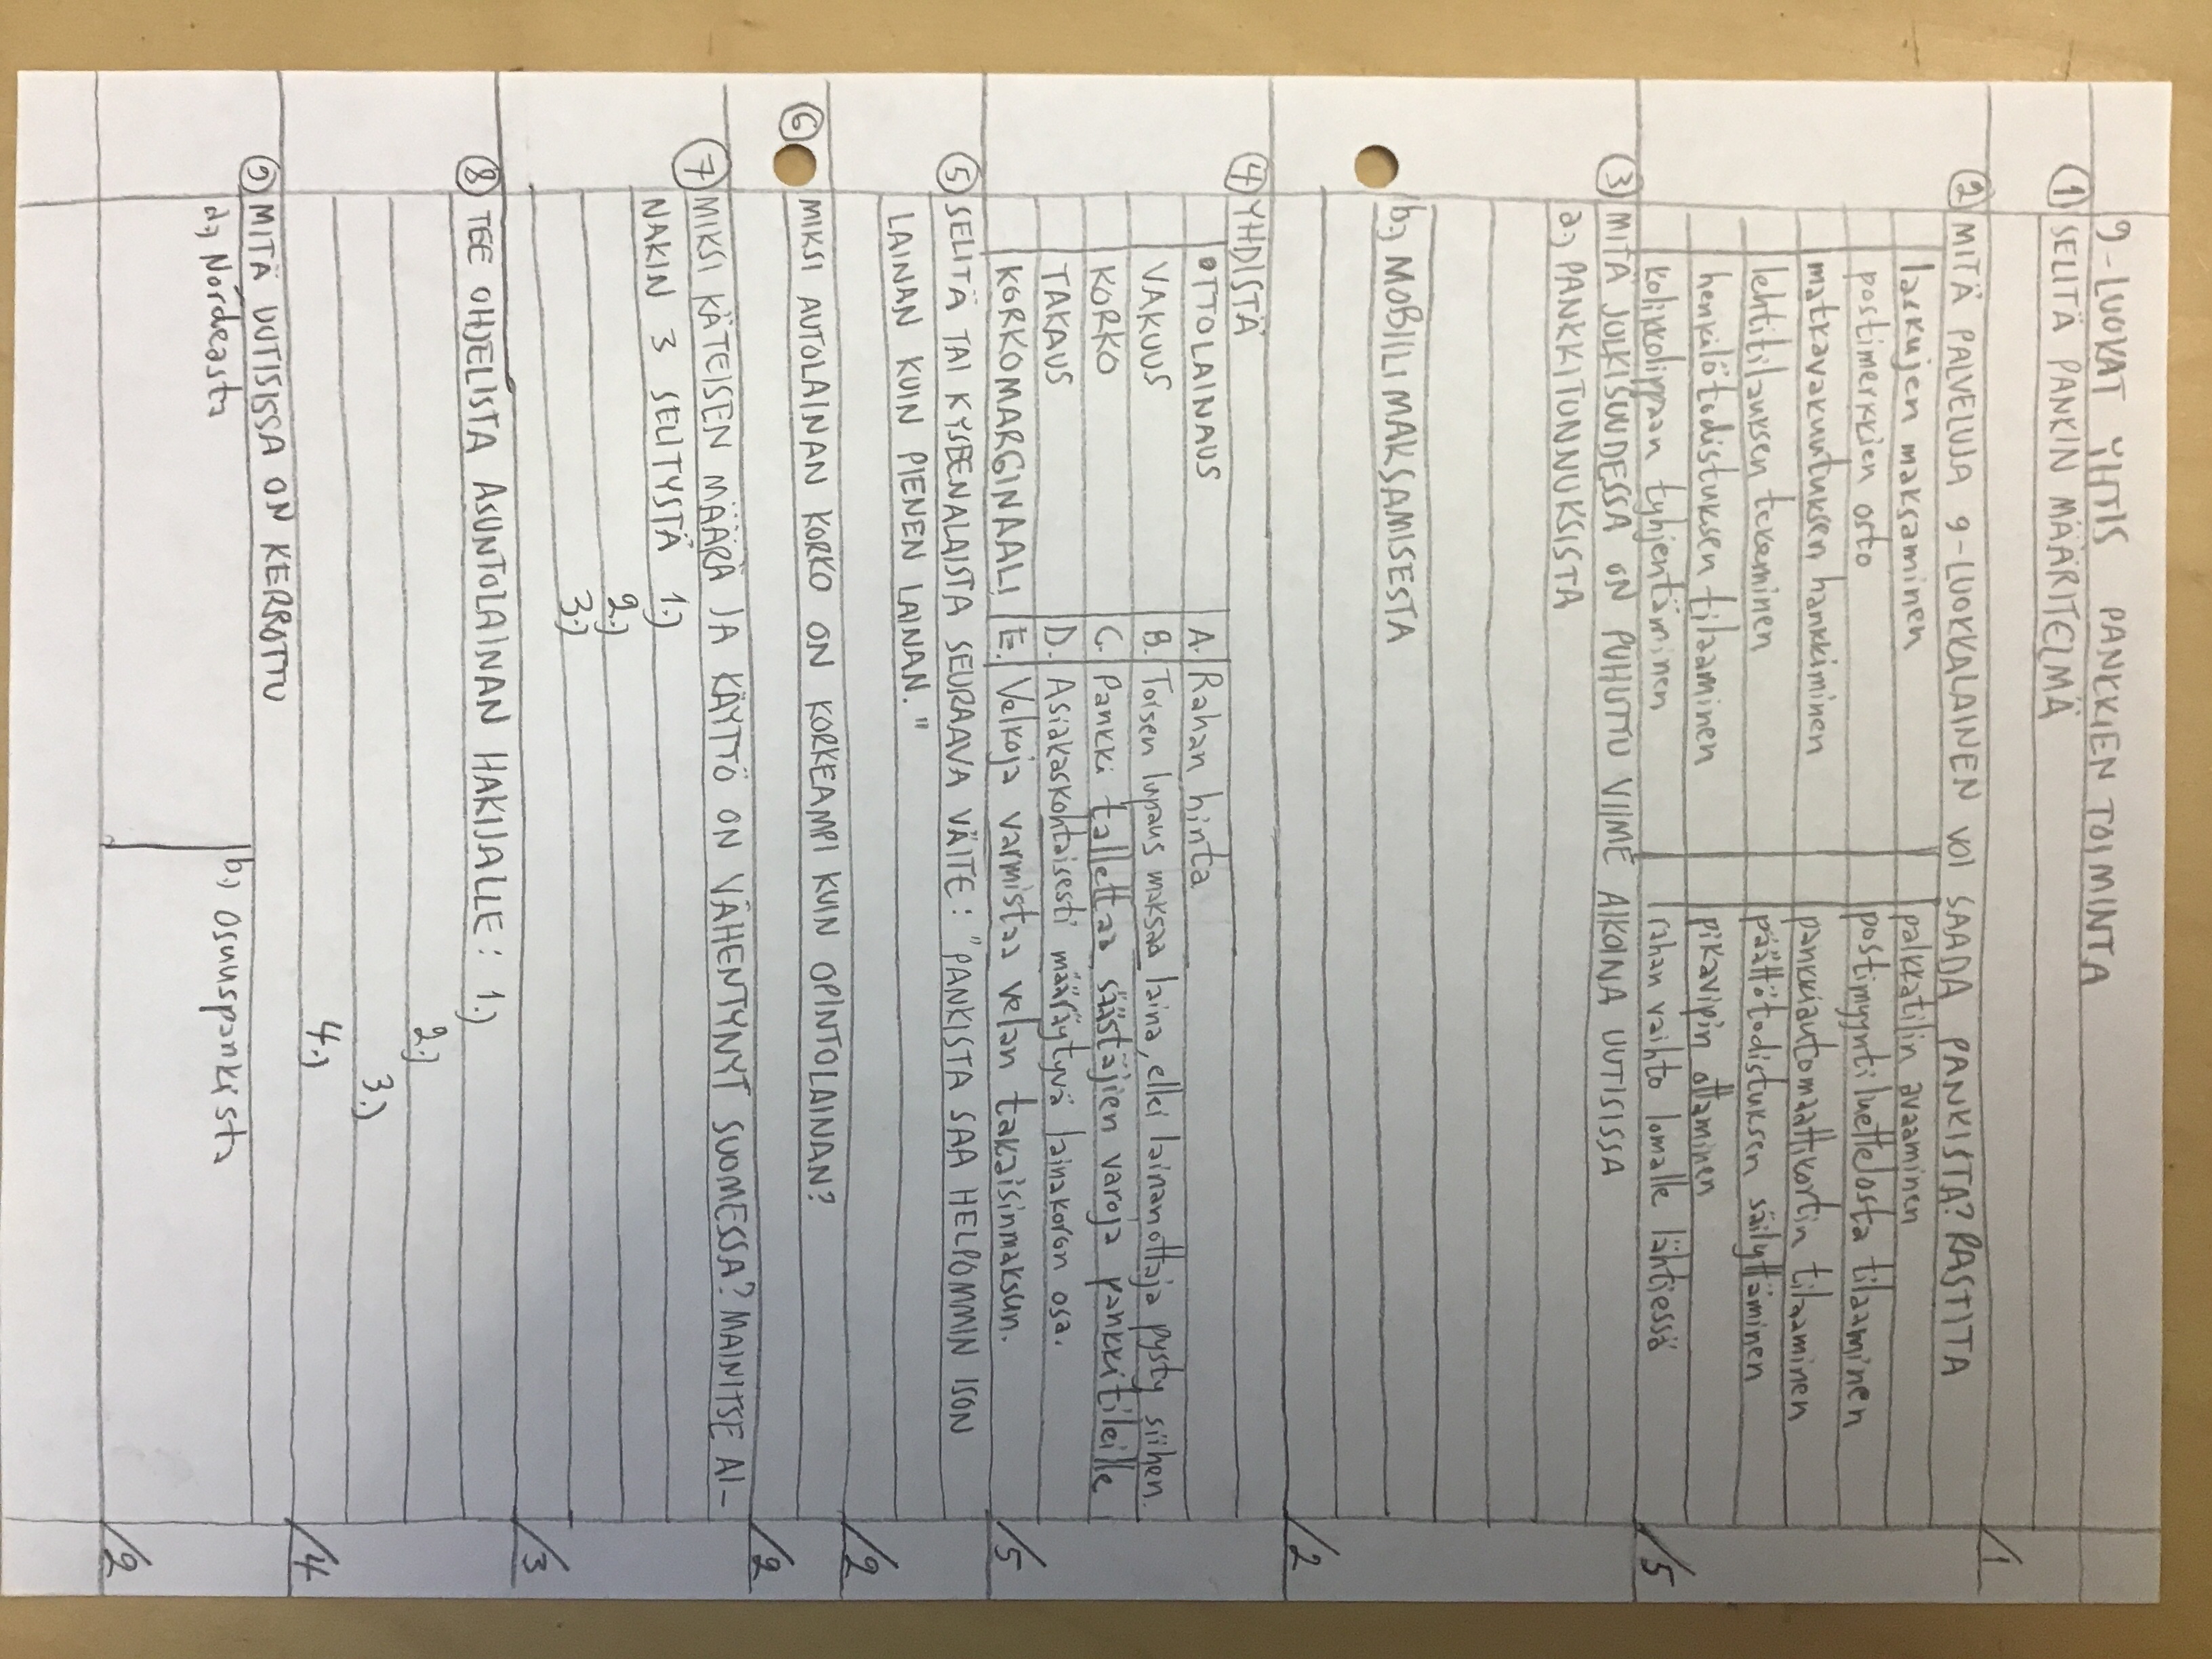 9-LUOKAT YHTIS PANKKIEN TOIMINTA
① SELITÄ PANKIN MÄÄRITELMÄ
/1
② MITÄ PALVELUJA 9-LUOKKALAINEN VOI SAADA PANKISTA? RASTITA
laskujen maksaminen palkkatilin avaaminen
postimerkkien osto postimyyntiluettelosta tilaaminen
matkavakuutuksen hankkiminen pankkiautomaattikortin tilaaminen
lehtitilauksen tekeminen päättötodistuksen säilyttäminen
henkilötodistuksen tilaaminen pikavipin ottaminen
kolikkolippaan tyhjentäminen rahan vaihto lomalle lähtiessä
/5
③ MITÄ JULKISUUDESSA ON PUHUTTU VIIME AIKOINA UUTISISSA
a.) PANKKITUNNUKSISTA
b.) MOBIILIMAKSAMISESTA
/2
④ YHDISTÄ
OTTOLAINAUS A. Rahan hinta
VAKUUS B. Toisen lupaus maksaa laina, ellei lainanottaja pysty siihen.
KORKO C. Pankki tallettaa säästäjien varoja pankkitileille
TAKAUS D. Asiakaskohtaisesti määräytyvä lainakoron osa.
KORKOMARGINAALI E. Velkoja varmistaa velan takaisinmaksun.
/5
⑤ SELITÄ TAI KYSEENALAISTA SEURAAVA VÄITE: "PANKISTA SAA HELPOMMIN ISON
LAINAN KUIN PIENEN LAINAN."
/2
⑥ MIKSI AUTOLAINAN KORKO ON KORKEAMPI KUIN OPINTOLAINAN?
/2
⑦ MIKSI KÄTEISEN MÄÄRÄ JA KÄYTTÖ ON VÄHENTYNYT SUOMESSA? MAINITSE AI-
NAKIN 3 SELITYSTÄ 1.)
2.)
3.)
/3
⑧ TEE OHJELISTA ASUNTOLAINAN HAKIJALLE: 1.)
2.)
3.)
4.)
/4
⑨ MITÄ UUTISISSA ON KERROTTU
a.) Nordeasta b.) Osuuspankista
/2